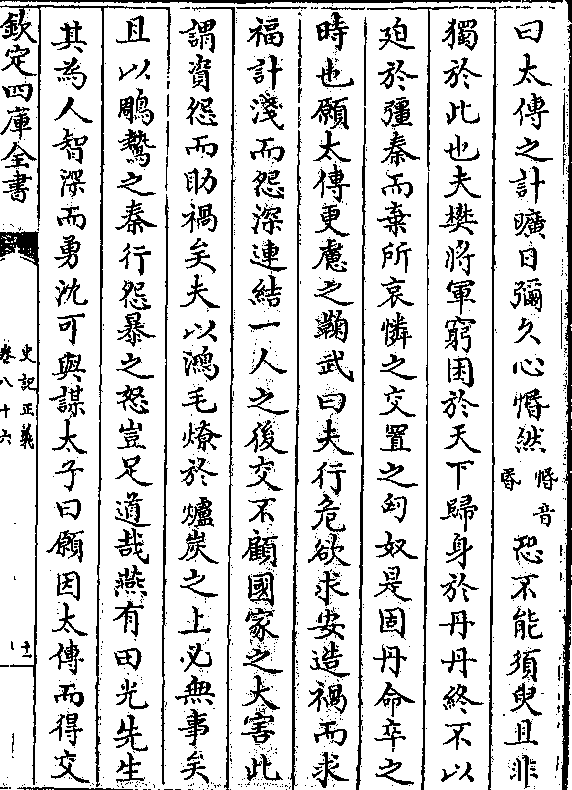 曰太傅之計曠日彌久心惛然惛音昬恐不能須臾且非
獨於此也夫樊將軍窮困於天下歸身於丹丹終不以
廹於彊秦而棄所哀憐之交置之匈奴是固丹命卒之
時也願太傅更慮之鞠武曰夫行危欲求安造禍而求
福計淺而怨深連結一人之後交不顧國家之大害此
謂資怨而助禍矣夫以鴻毛燎於爐炭之上必無事矣
且以鵰鷙之秦行怨暴之怒豈足道哉燕有田光先生
其為人智深而勇沈可與謀太子曰願因太傅而得交
欽定四庫全書
史記正義
卷八十六
十一